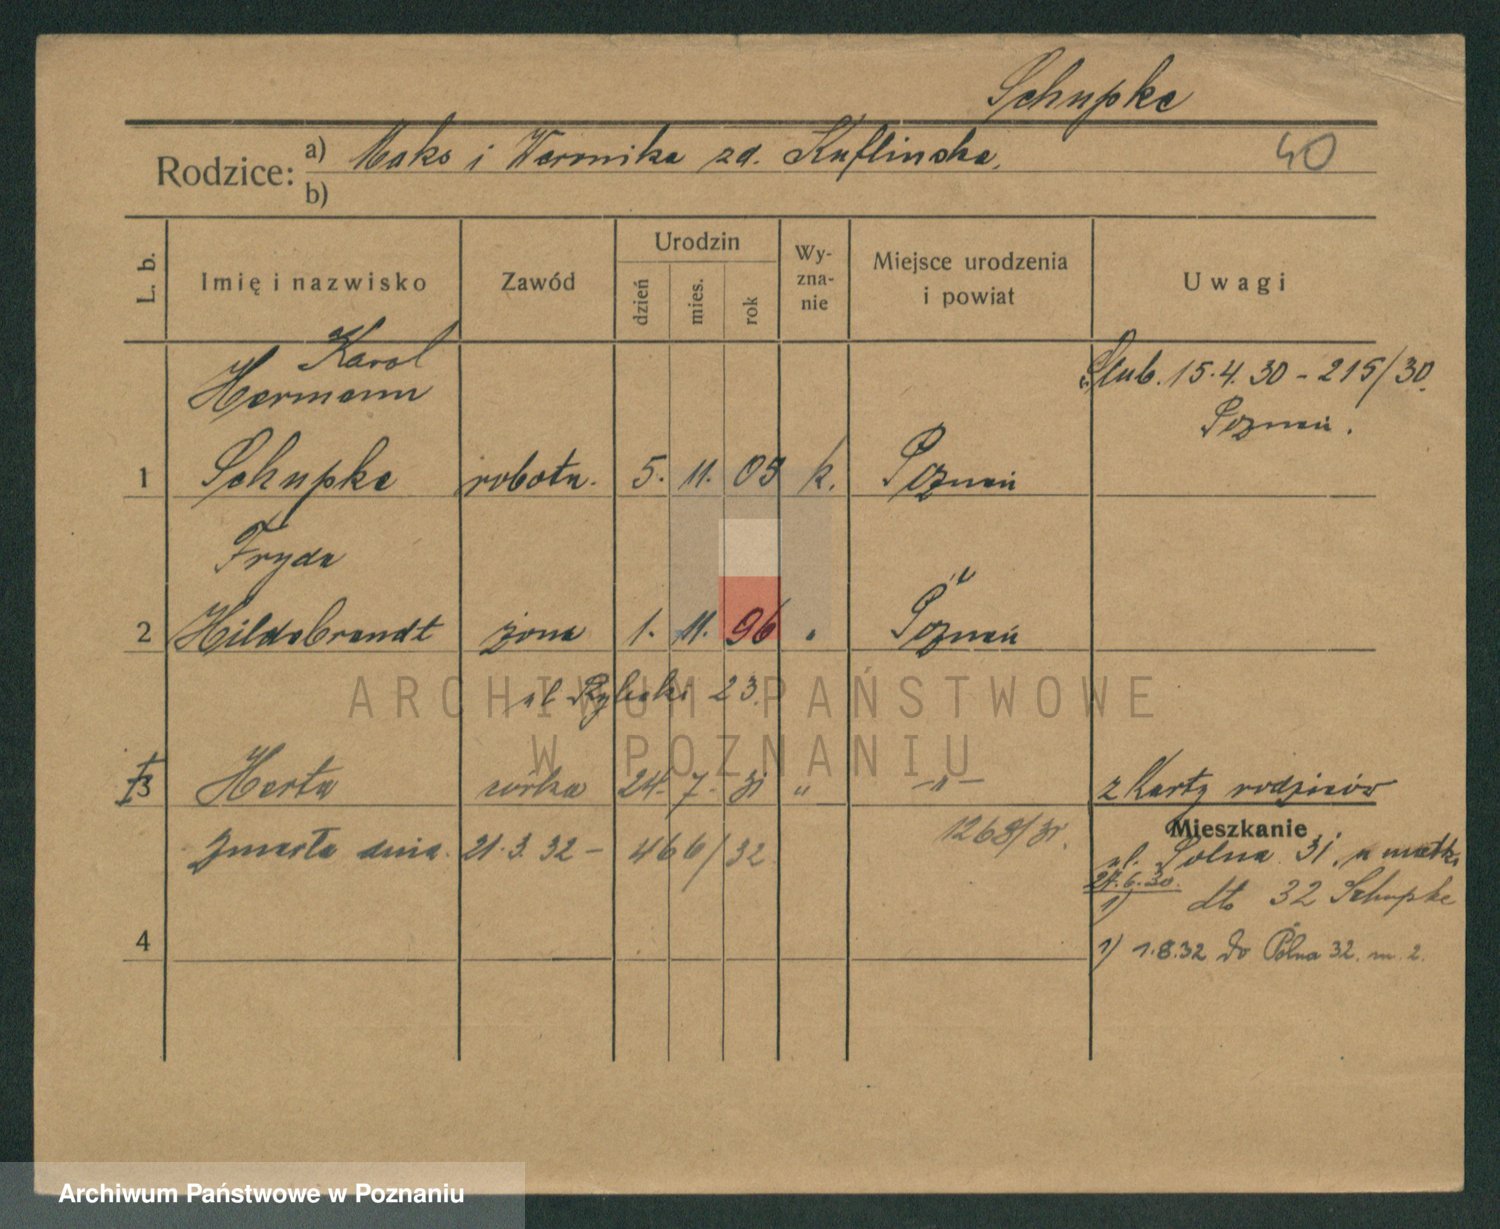 Schupke
Rodzice: a) Maks i Weronika zd. Kuflinska.
40
b)
L. b.
Imię i nazwisko
Zawód
Urodzin
dzień
mies.
rok
Wy-
zna-
nie
Miejsce urodzenia
i powiat
Uwagi
Karol
Hermann
Ślub. 15.4.30 – 215/30.
Poznań.
1 Schupke robotn. 5. 11. 05 k. Poznań
Fryda
2 Hildebrandt żona 1. 11. 96 " Poznań
ul. Rybaki 23.
ARCHIWUM PAŃSTWOWE
W POZNANIU
† 3 Herta córka 24. 7. 31 " –"– z Karty rodziców
1268/31.
Zmarła dnia 21.3.32 – 466/32
Mieszkanie
ul. Polna 31, u matki
24.6.30.
1) dto 32 Schupke
4
1) 1.8.32 do Polna 32. m. 2.
Archiwum Państwowe w Poznaniu